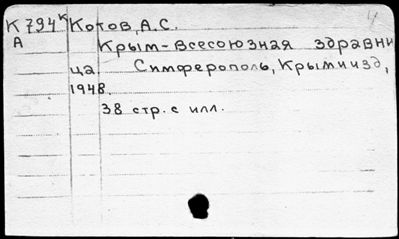 К 794к Котов, А.С.
А
Крым-всесоюзная здравни
ца. Симферополь, Крымиизд,
1948.
38 стр. с илл.